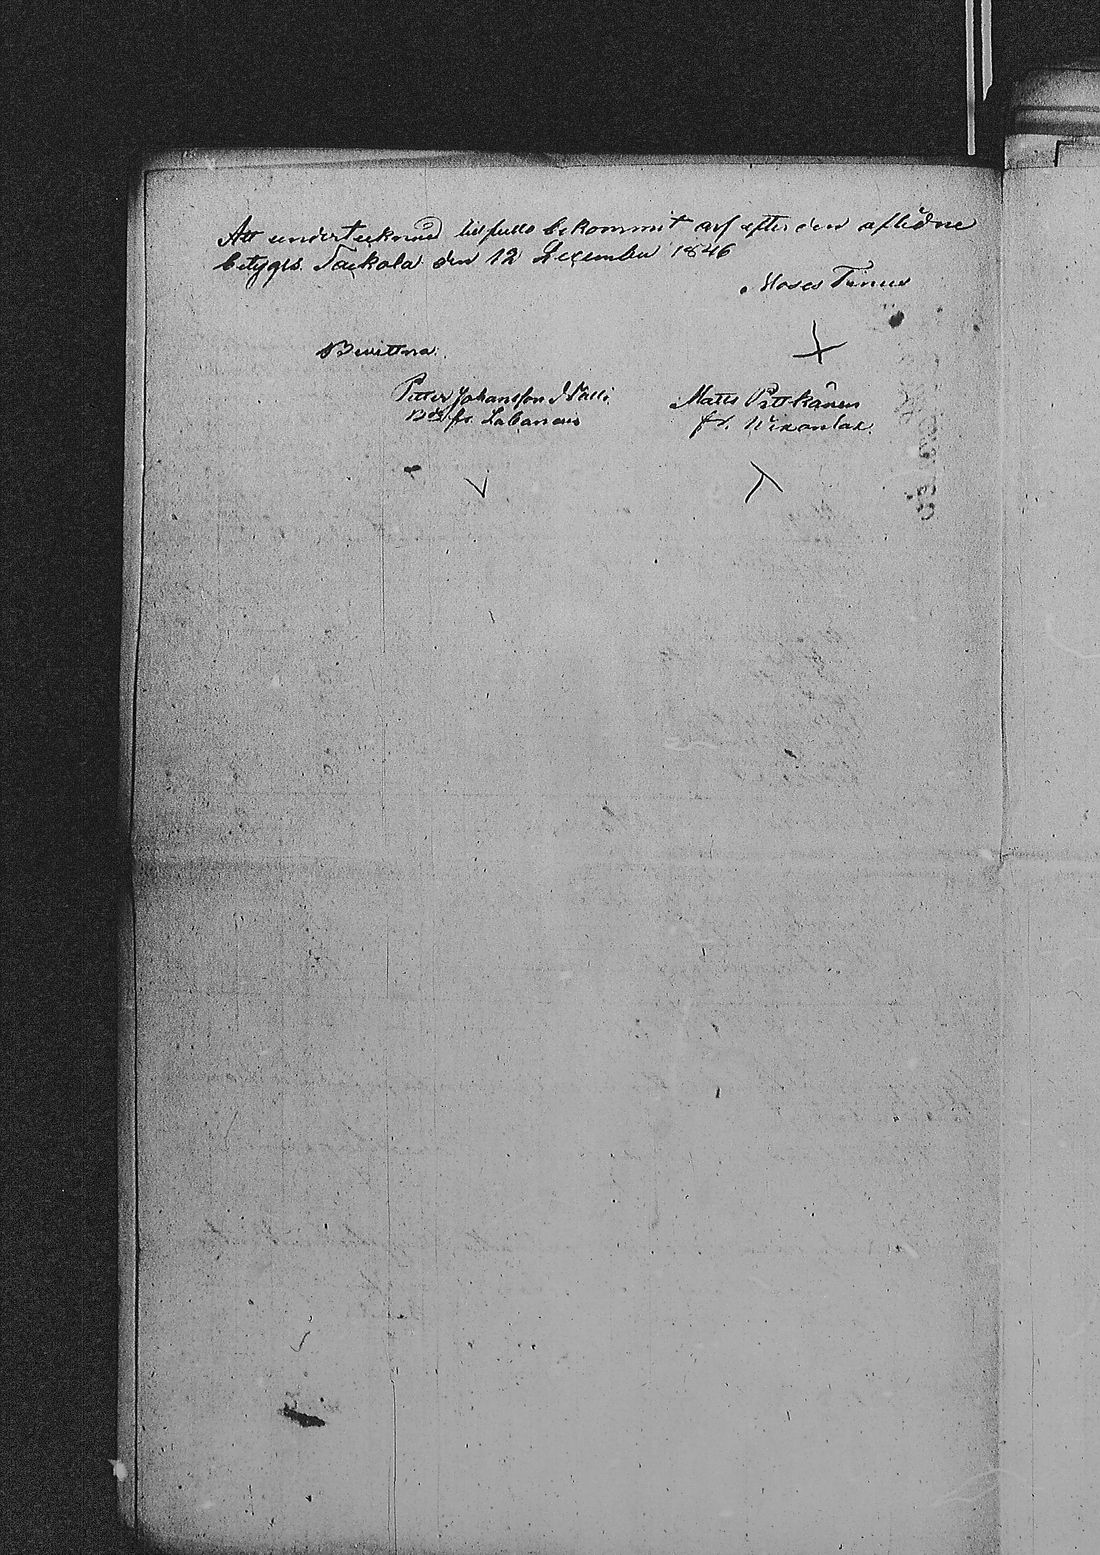 Att undertecknad till fullo bekommit arf efter den aflidne
betygis. Taekola den 12 December 1846
Moses Tenne
Bevittna.
Petter Johansson
fr. Labanais
Matts Pittkänen
fr.